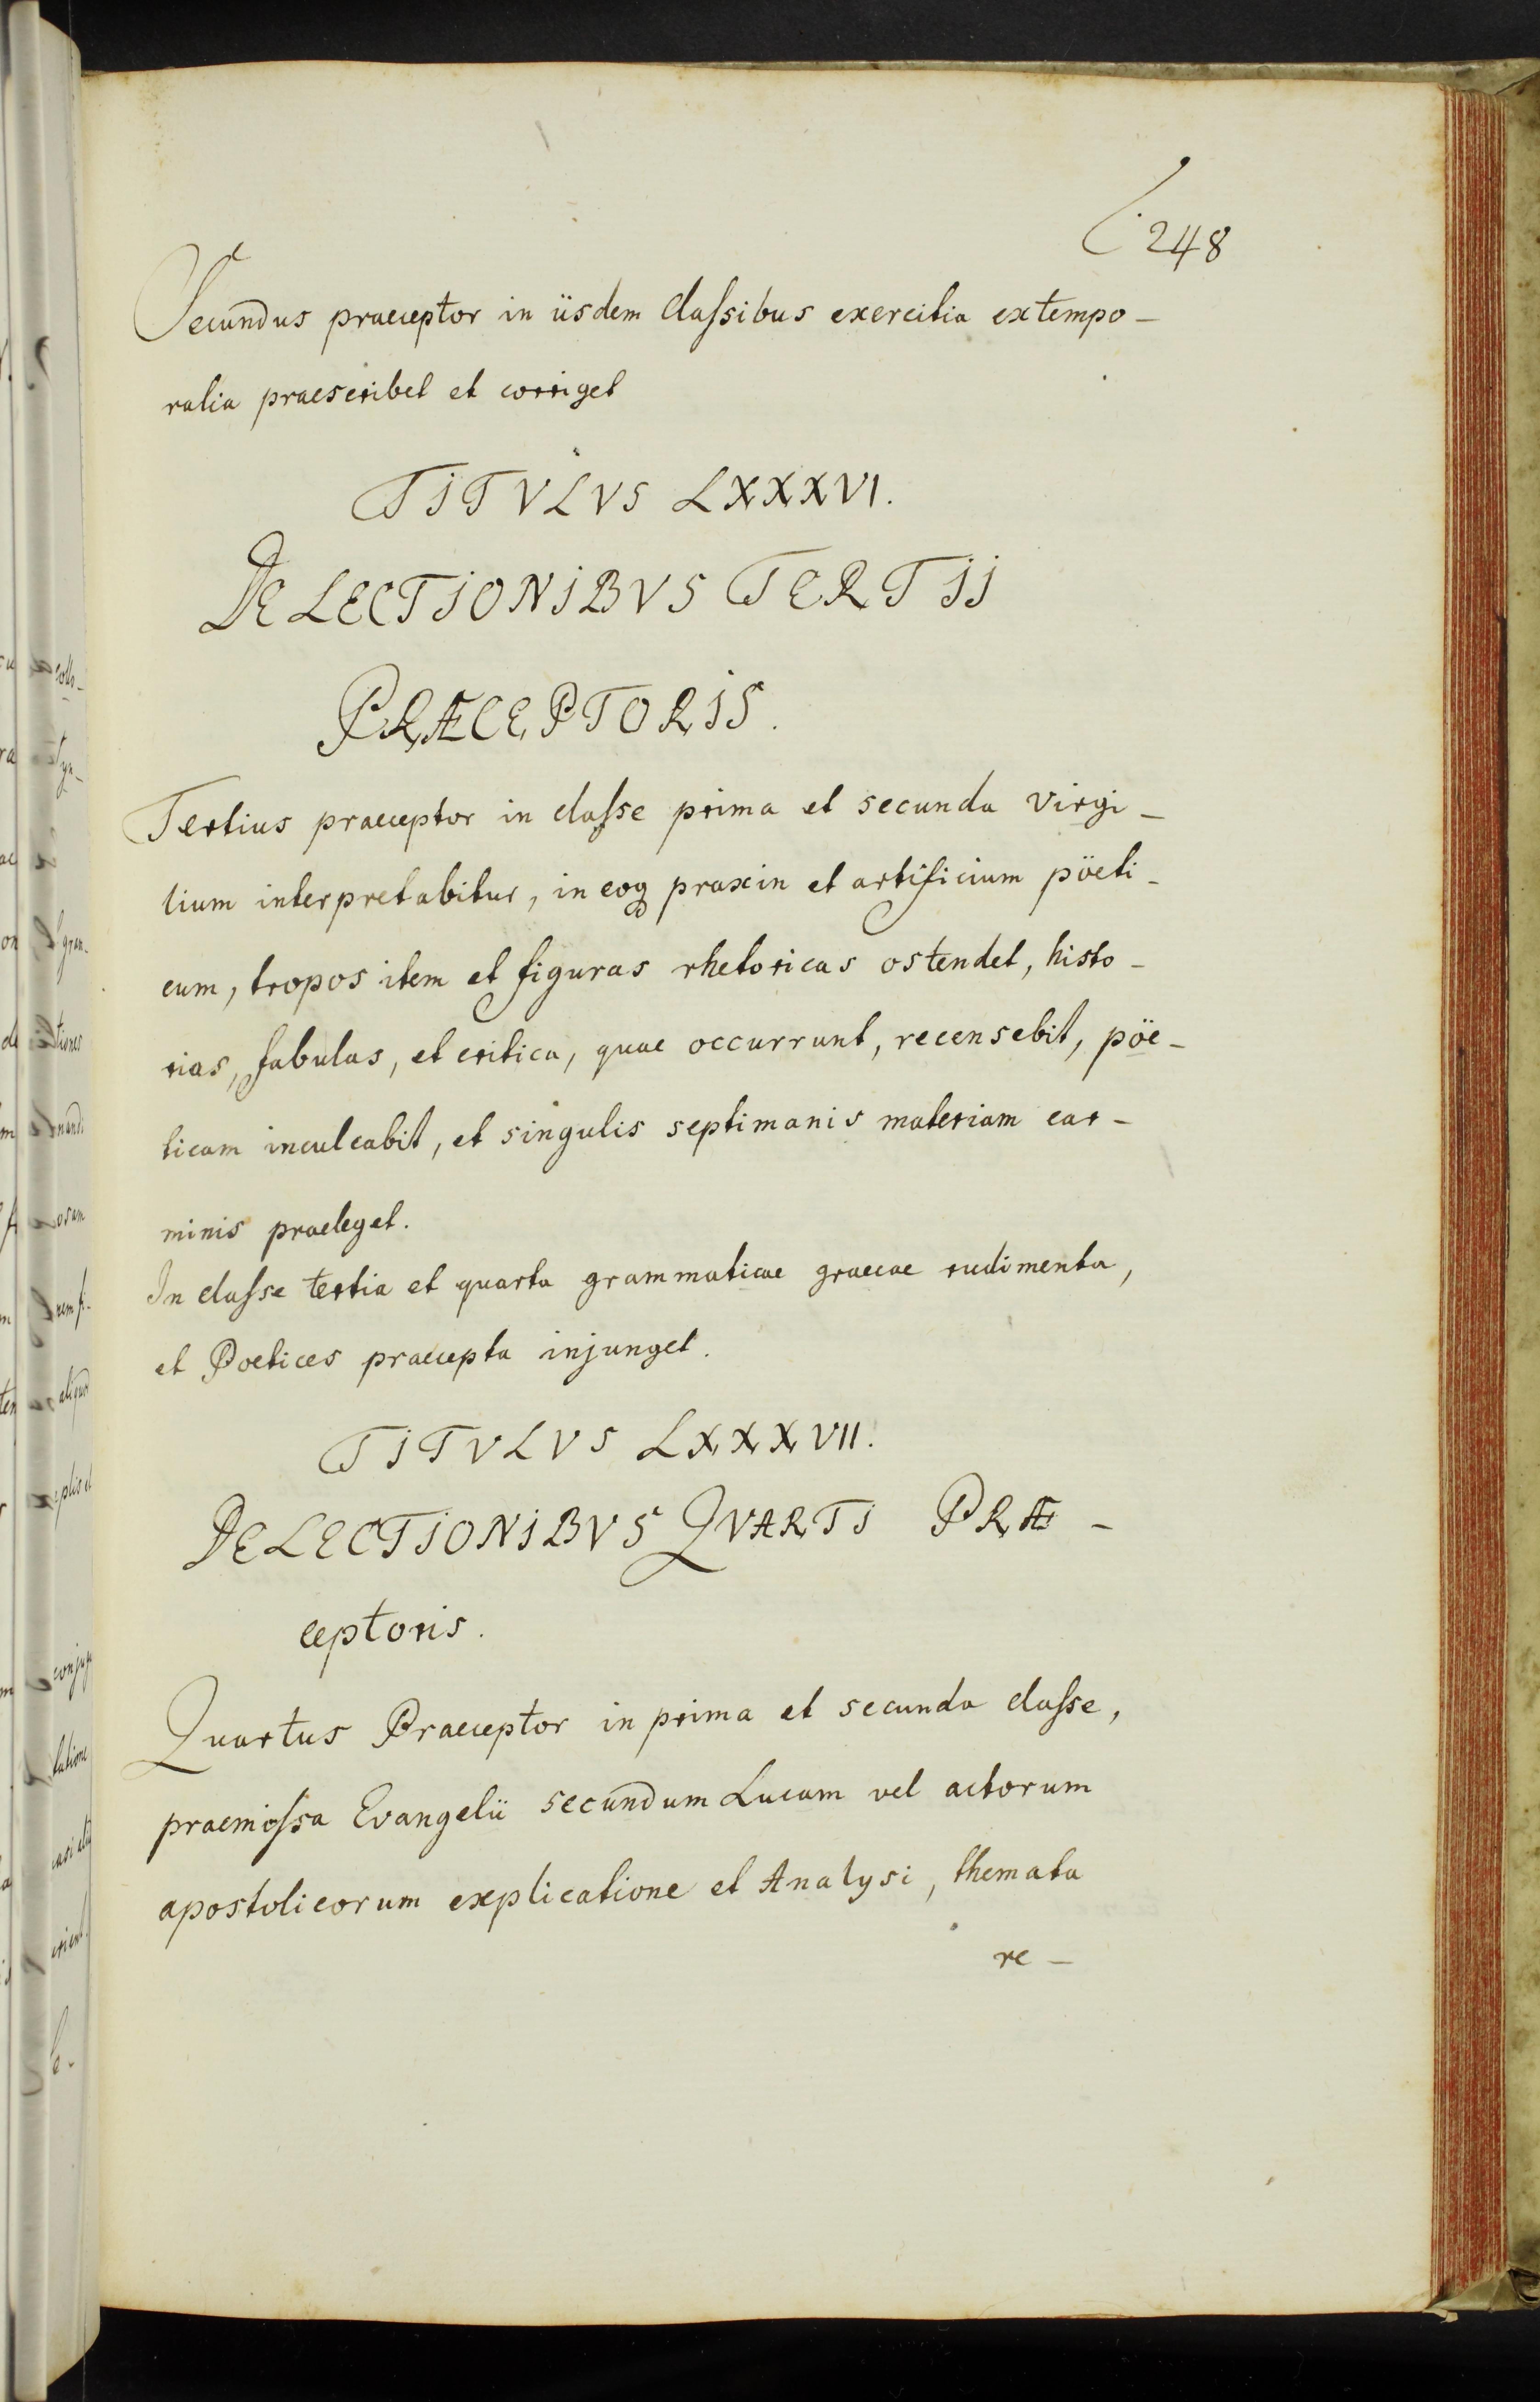 248
Secundus praeceptor in iisdem Classibus exercitia extempo-
ralia praescribet et corriget
TITVLVS LXXXVI.
DE LECTIONIBVS TERTII
PRÆCEPTORIS.
Tertius praeceptor in classe prima et secunda Virgi-
lium interpretabitur, in eoq praxin et artificium pöeti-
cum, tropos item et figuras rhetoricas ostendet, histo-
rias, fabulas, et critica, quae occurrunt, recensebit, pöe-
ticam inculcabit, et singulis septimanis materiam car-
minis praeleget.
In classe tertia et quarta grammaticae graecae rudimenta,
et Poetices praecepta injunget.
TITVLVS LXXXVII.
DE LECTIONIBVS QVARTI PRÆ-
ceptoris.
Quartus Praeceptor in prima et secunda classe,
praemissa Evangelii secundum Lucam vel actorum
apostolicorum explicatione et Analysi, themata
re-